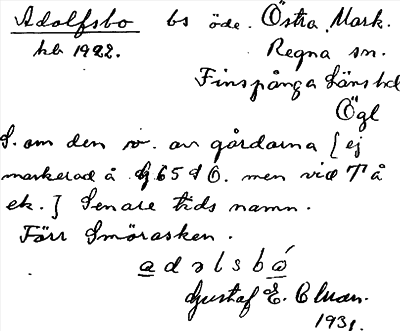 Adolfsbo bs öde. Östra Mark.
hb 1922. Regna sn.
Finspånga länshd
Ögl
S. om den v. av gårdarna [ej
markerad å Gj 65 d O. men vid T å
ek.] Senare tids namn.
Förr Smörasken.
adɔlsbó
Gustaf E. Clman.
1931.